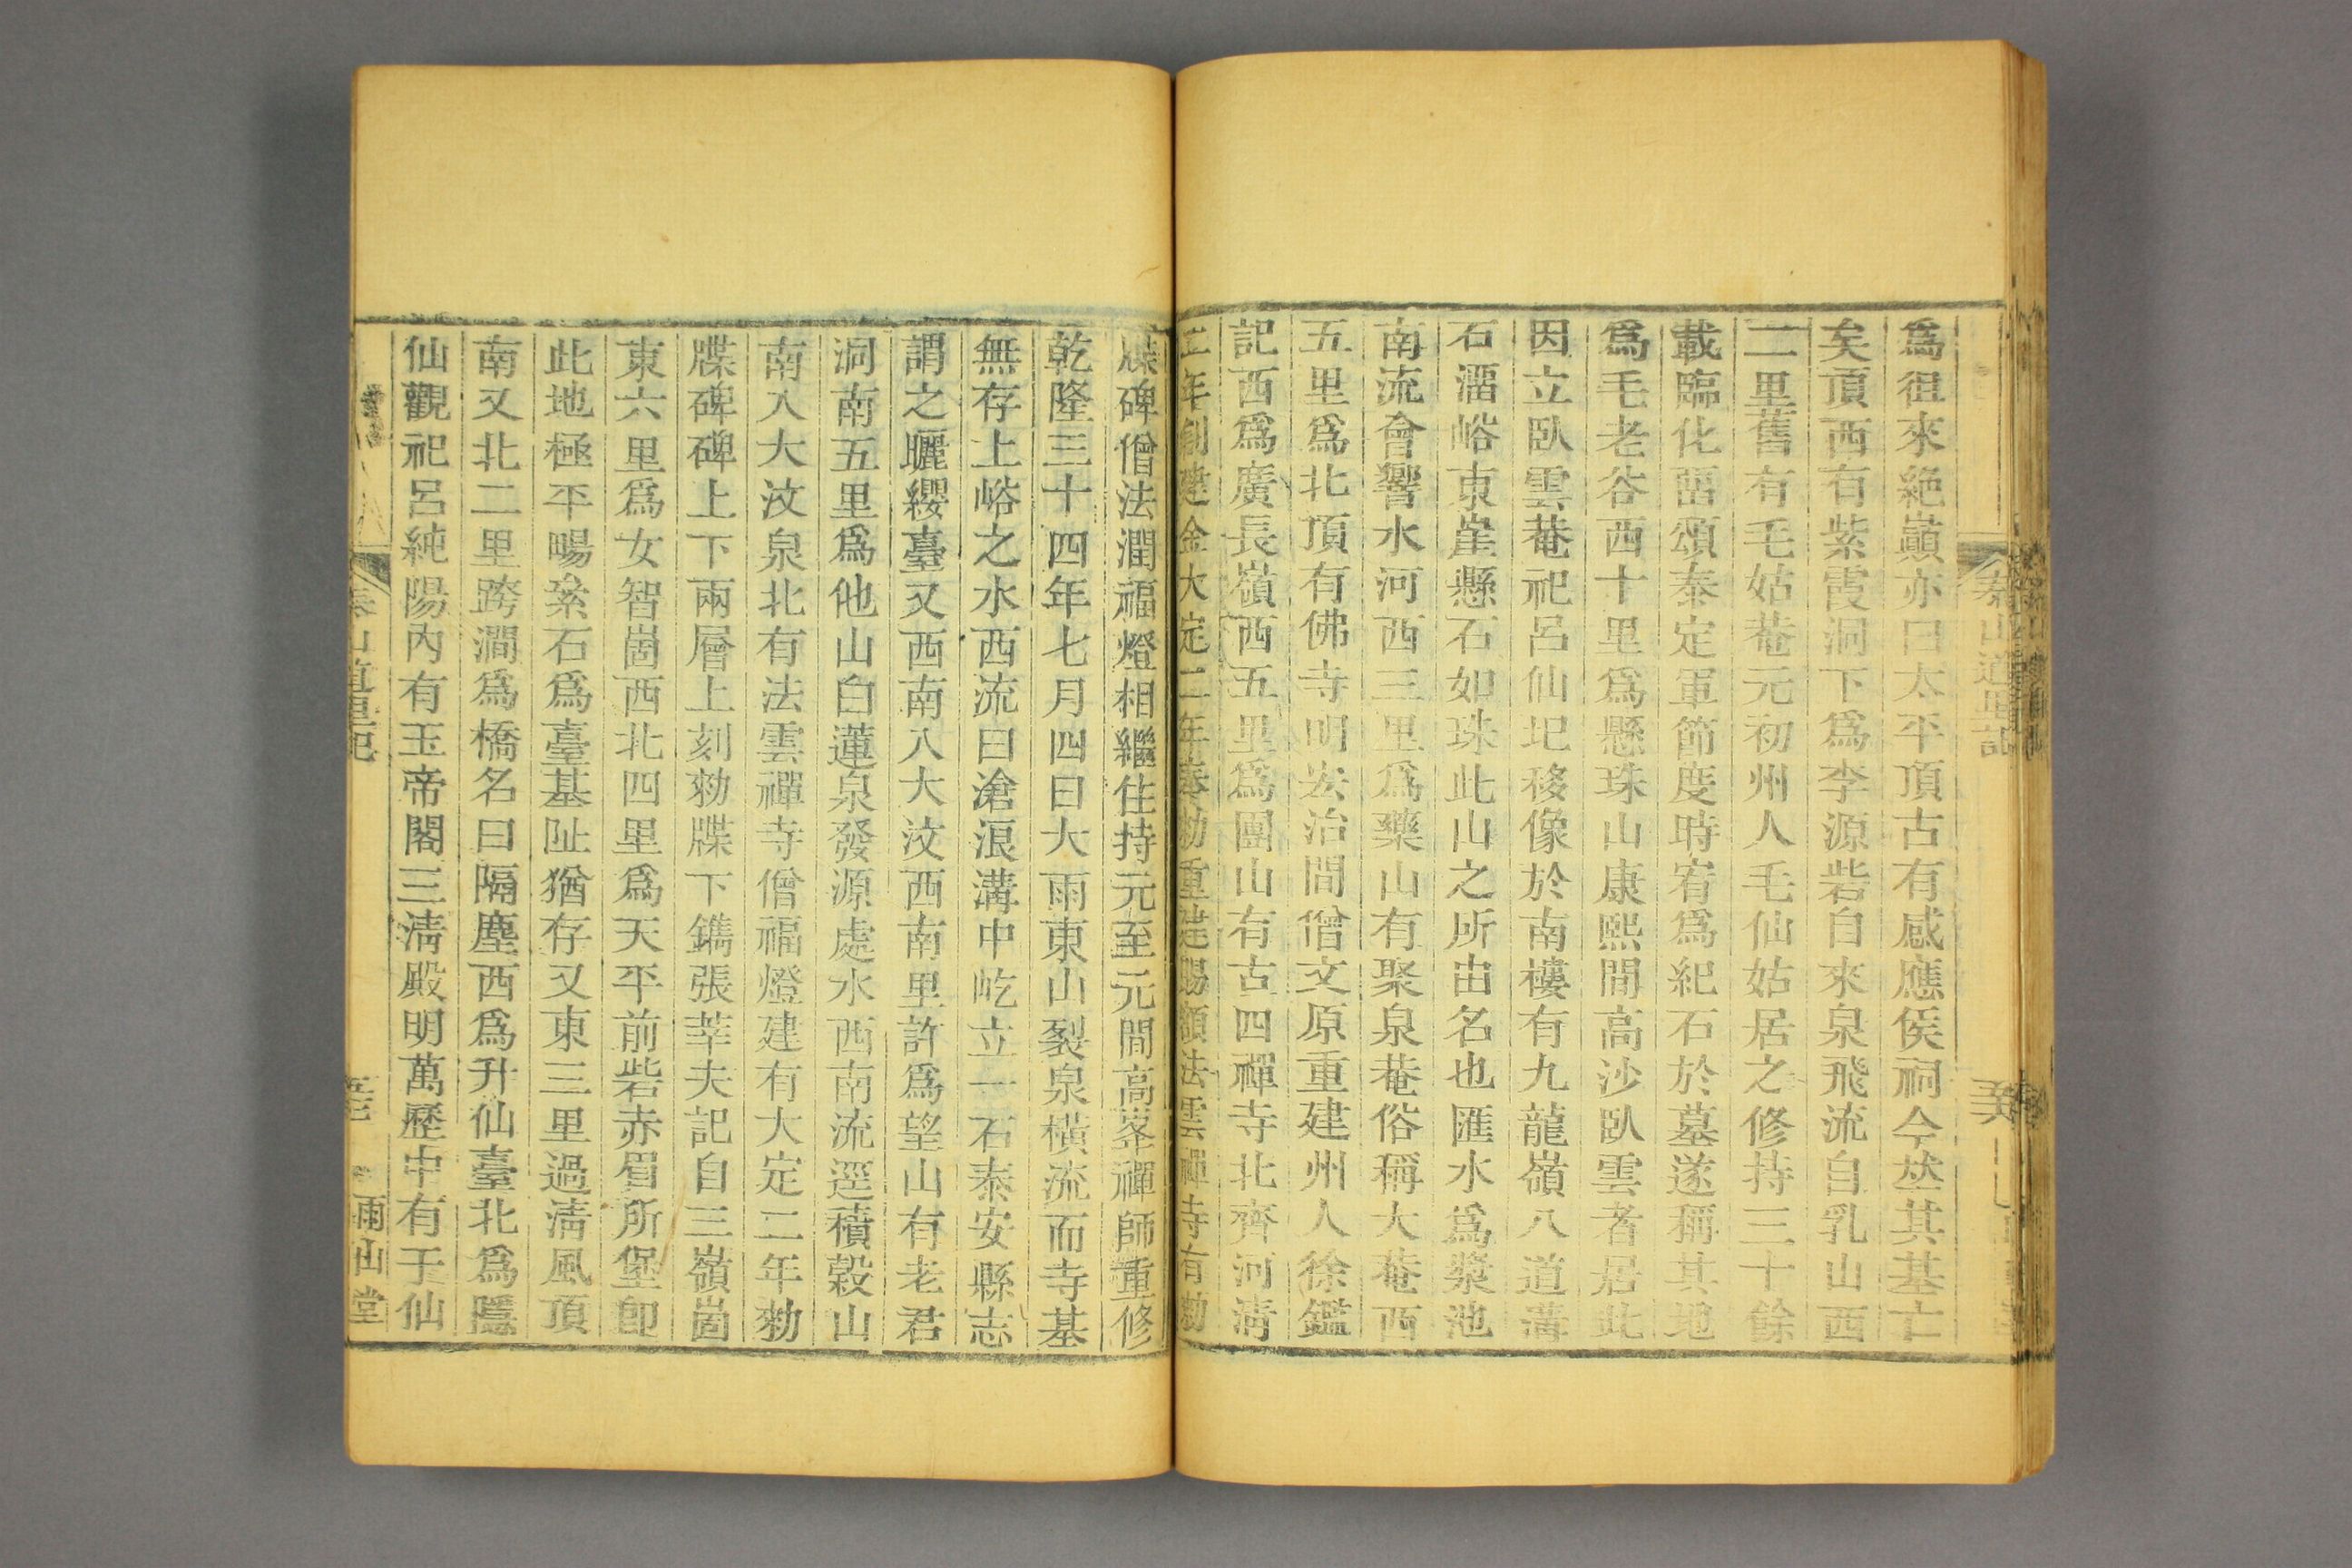 泰山道里記
爲徂來絶巓亦曰太平頂古有感應侯祠今茲其基亡
矣頂西有紫霞洞下爲李源砦自來泉飛流白乳山西
二里舊有毛姑菴元初州人毛仙姑居之修持三十餘
載臨化畱頌泰定軍節度時宥爲紀石於墓遂稱其地
爲毛老谷西十里爲懸珠山康熙間高沙臥雲者居此
因立臥雲菴祀呂仙圮移像於南樓有九龍嶺八道溝
石溜峪東崖懸石如珠此山之所由名也匯水爲漿池
南流會響水河西三里爲藥山有聚泉菴俗稱大菴西
五里爲北頂有佛寺明宏治間僧文原重建州人徐鑑
記西爲廣長嶺西五里爲團山有古四禪寺北齊河清
二年創建金大定二年奉勑重建賜額法雲禪寺有勑
牒碑僧法潤福燈相繼住持元至元間高峯禪師重修
乾隆三十四年七月四日大雨東山裂泉橫流而寺基
無存上峪之水西流曰滄浪溝中屹立一石泰安縣志
謂之曬纓臺又西南入大汶西南里許爲望山有老君
洞南五里爲他山白蓮泉發源處水西南流逕積穀山
南入大汶泉北有法雲禪寺僧福燈建有大定二年勑
牒碑碑上下兩層上刻勑牒下鐫張莘夫記自三嶺崮
東六里爲女智崮西北四里爲天平前砦赤眉所堡卽
此地極平暘絫石爲臺基阯猶存又東三里過清風頂
南又北二里跨澗爲橋名曰隔塵西爲升仙臺北爲隱
仙觀祀呂純陽內有玉帝閣三清殿明萬歷中有于仙
泰山道里記
雨山堂